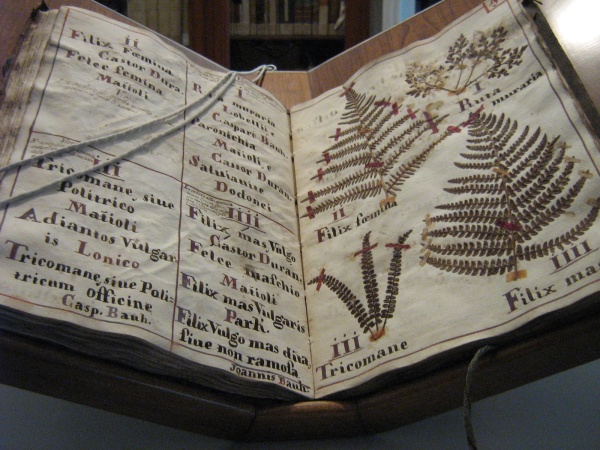 ii
Filix femina
Castor Dura
Felce femina
Maïoli
iii
Tricomane, siue
Politrico
Maïoli
Adiantos Vulgar
is Lonico
Tricomane, siue Poli
tricum officine
Casp. Bauh.
muraria
Lobellii
Caspari Bauh
Paronichia
Maïoli
Castor Duran
Saluianine
Dodonei
iiii
Filix mas Vulgo
Castor Duran
Felce maschio
Maïoli
Filix mas Vulgaris
Park.
Filix Vulgo mas dita
siue non ramosa
Joannis Bauh
I
Ruta muraria
ii
Filix femina
iii
Tricomane
iiii
Filix mas